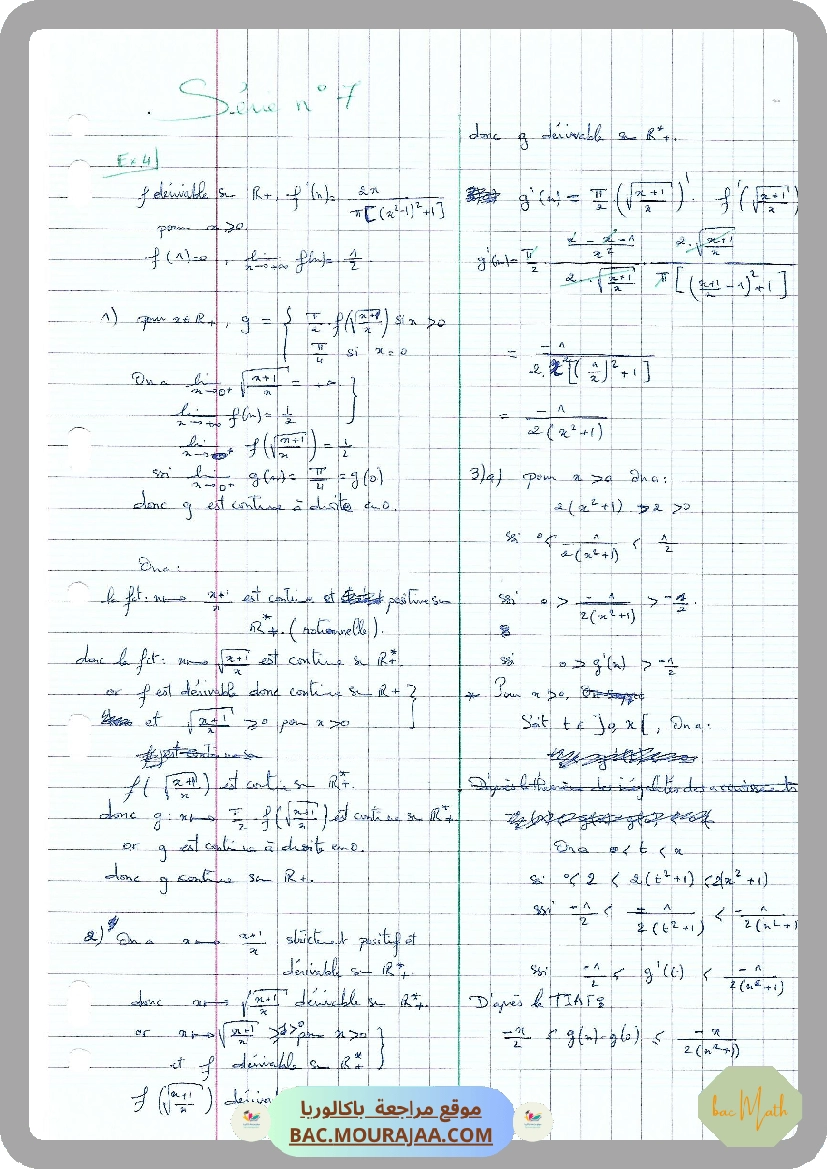 Série n° 7
Ex 4
f dérivable sur R+, f'(x) = 2x / π[(x²-1)²+1]
pour x ≥ 0.
f(1)=0, lim x→+∞ f(x) = 1/2.
1) pour x ∈ R+, g = { π/2 · f(√((x+1)/x)) si x > 0
π/4 si x = 0
On a lim x→0+ √((x+1)/x) = +∞
lim x→+∞ f(x) = 1/2
lim x→0+ f(√((x+1)/x)) = 1/2
ssi lim x→0+ g(x) = π/4 = g(0)
donc g est continue à droite en 0.
On a :
la fct : x ↦ (x+1)/x est continue et positive sur
R*+. (rationnelle).
donc la fct : x ↦ √((x+1)/x) est continue sur R*+
or f est dérivable donc continue sur R+
et √((x+1)/x) ≥ 0 pour x > 0
f(√((x+1)/x)) est continue sur R*+.
donc g : x ↦ π/2 · f(√((x+1)/x)) est continue sur R*+
or g est continue à droite en 0.
donc g continue sur R+.
2) On a x ↦ (x+1)/x strictement positif et
dérivable sur R*+.
donc x ↦ √((x+1)/x) dérivable sur R*+.
or x ↦ √((x+1)/x) > 0 pour x > 0
et f dérivable sur R*+
f(√((x+1)/x))
donc g dérivable sur R*+.
g'(x) = π/2 · (√((x+1)/x))' · f'(√((x+1)/x))
g'(x) = π/2 · ((x - x - 1)/x²) / (2·√((x+1)/x)) · (2·√((x+1)/x)) / (π[((x+1)/x - 1)²+1])
= -1 / (2·x²[(1/x)²+1])
= -1 / (2(x²+1))
3) a) pour x > 0 On a :
2(x²+1) > 2 > 0
ssi 0 < 1/(2(x²+1)) < 1/2
ssi 0 > -1/(2(x²+1)) > -1/2.
ssi 0 > g'(x) > -1/2
* Pour x > 0,
Soit t ∈ ]0, x[, On a :
On a 0 < t < x
ssi 0 < 2 < 2(t²+1) < 2(x²+1)
ssi -1/2 < -1/(2(t²+1)) < -1/(2(x²+1)
ssi -1/2 < g'(t) < -1/(2(x²+1))
D'après le TIAFs
-x/2 ≤ g(x)-g(0) ≤ -x/(2(x²+1))
موقع مراجعة باكالوريا
BAC.MOURAJAA.COM
bac Math